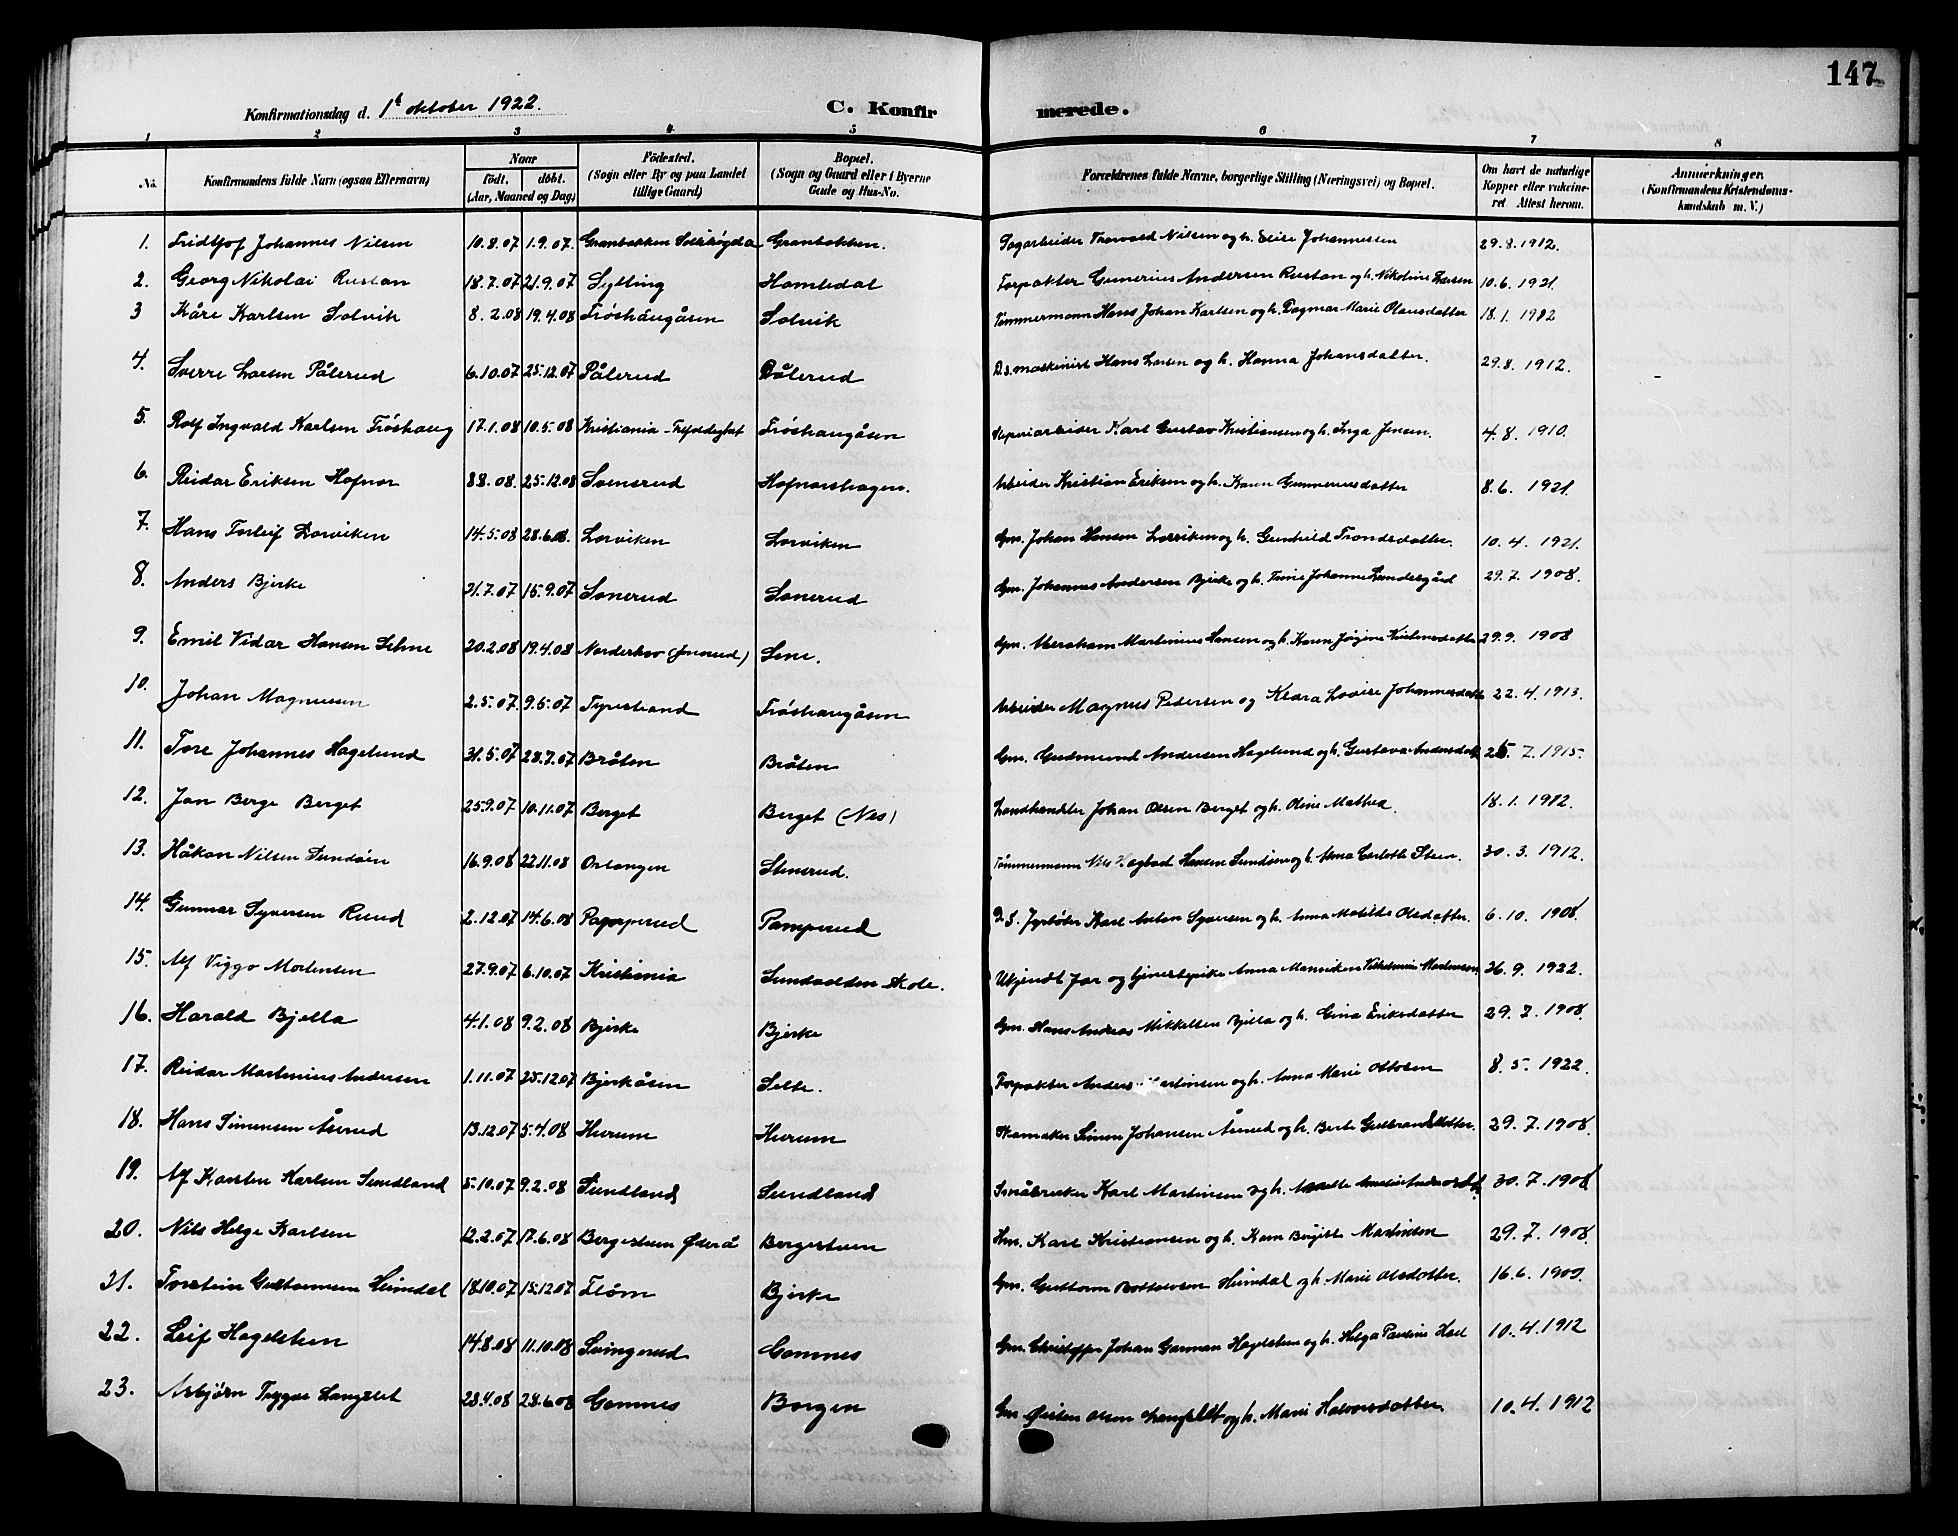 147
Konfirmationsdag d. 1ste oktober 1922. C. Konfirmerede.
1 2 3 4 5 6 7 8
No. Konfirmandens fulde Navn (ogsaa Efternavn) Naar födt. döbt. (Aar, Maaned og Dag) Födested. (Sogn eller By og paa Landet tillige Gaard) Bopæl. (Sogn og Gaard eller i Byerne Gade og Hus-No. Forældrenes fulde Navne, borgerlige Stilling (Næringsvei) og Bopæl. Om havt de naturlige Kopper eller vakcineret Attest herom. Anmærkninger. (Konfirmandens Kristendomskundskab m. V.)
1. Fridtjof Johannes Nilsen 10.8.07 1.9.07. Granbakken Sollihøgda Granbakken. Sagarbeider Thorvald Nilsen og h. Elise Johannessen 29.8.1912.
2. Georg Nikolai Rustan 18.7.07 21.9.07 Sylling Homledal Forpakter Gunerius Andersen Rustan og h. Nikoline Larsen 10.6.1921.
3 Kåre Karlsen Solvik 8.2.08 19.4.08 Frøshaugåsen Solvik Tømmermann Hans Johan Karlsen og h. Dagmar Marie Olausdatter 18.1.1912
4. Sverre Larsen Pålerud 6.10.07 25.12.07 Pålerud Pålerud D.s. maskinist Hans Larsen og h. Hanna Johansdatter. 29.8.1912.
5. Rolf Ingvald Karlsen Frøshaug 17.1.08 10.5.08 Kristiania Frøshaugåsen Karl Gustav Kristiansen og h. Inga Jensen. 4.8.1910.
6. Reidar Eriksen Hofnor 8.8.08. 25.12.08 Svensrud Hofnorshagen. Arbeider Kristian Eriksen og h. Karen Gunneriusdatter 8.6.1921.
7. Hans Torleif Lorviken 14.5.08 28.6.08. Lorviken Lorviken Gm. Johan Hansen Lorviken og h. Gunhild Trondsdatter. 10.4.1921.
8. Anders Bjerke 21.7.07 15.9.07 Sonerud Sonerud Gm. Johannes Andersen Bjerke og h. Trine Johanne Lundesgård 29.7.1908.
9. Emil Vidar Hansen Sehne 20.2.08 19.4.08 Norderhov Sene. Gm. Abraham Martinius Hansen og h. Karen Jørgine 29.9.1908
10. Johan Magnussen 2.5.07. 9.6.07 Tyristrand Frøshaugåsen Arbeider Magnus Pedersen og Klara Lovise Johannesdatter 22.4.1913.
11. Tore Johannes Hagelund 31.5.07 28.7.07 Bråten Bråten Gm. Gudmund Andersen Hagelund og h. Gustava Andersdatt. 25.7.1915.
12. Jan Berge Berget 25.9.07 10.11.07 Berget Berget (Nes) Landhandler Johan Olsen Berget og h. Oline Mathea 18.1.1912.
13. Håkon Nilsen Sundøen 16.9.08 22.11.08 Orlangen Stensrud. Tømmermann Nils Hagbart Hansen Sundøen og h. Anna Carlotte Steen. 30.3.1912.
14. Gunnar Syversen Ruud 2.12.07 14.6.08 Pamperud Pamperud D.S. fyrbøter Karl Anton Syversen og h. Anna Matilde Olsdatter. 6.10.1908.
15. Alf Viggo Mortensen 27.9.07 6.10.07 Kristiania Sundvolden skole. Ukjendt far og tjenestepike Anna Vilhelmine Mortensen 26.9.1922.
16. Harald Bjella 4.1.08 9.2.08 Bjerke Bjerke Gm. Hans Andreas Mikkelsen Bjella og h. Gina Eriksdatter 29.7.1908.
17. Reidar Martinius Andersen 1.11.07 25.12.07 Bjerkåsen Selte. Forpakter Anders Martinsen og h. Anna Marie Ottosen 8.5.1922.
18. Hans Simensen Åserud 13.12.07 5.4.08 Hurum Hurum Skomaker Simen Johansen Åserud og h. Berte Gulbrandsdatter. 29.7.1908.
19. Alf Karsten Karlsen Sundland 5.10.07 9.2.08 Sundland Sundland Småbruker Karl Martinsen og h. 30.7.1908
20. Nils Helge Karlsen 12.2.07 17.6.08 Bergesteen Øderå Bergesteen Hm. Karl Kristiansen og h. Karen Birgitte Martinsen 29.7.1908.
21. Torstein Guttormsen Heimdal 18.10.07 15.12.07 Flöm Bjerke Gm. Guttorm Bottolvsen Heimdal og h. Marie Olsdatter. 16.6.1909.
22. Leif Hagelsteen 14.8.08 11.10.08 Svingerud Gomnes Gm. Christoffer Johan Garman Hagelsteen og h. Helga Pauline 10.4.1912
23. Asbjørn Trygve Langslet 28.4.08 28.6.08 Gomnes Borgen Gm Østen Olsen Langslet og h. Marie Halvorsdatter 10.4.1912